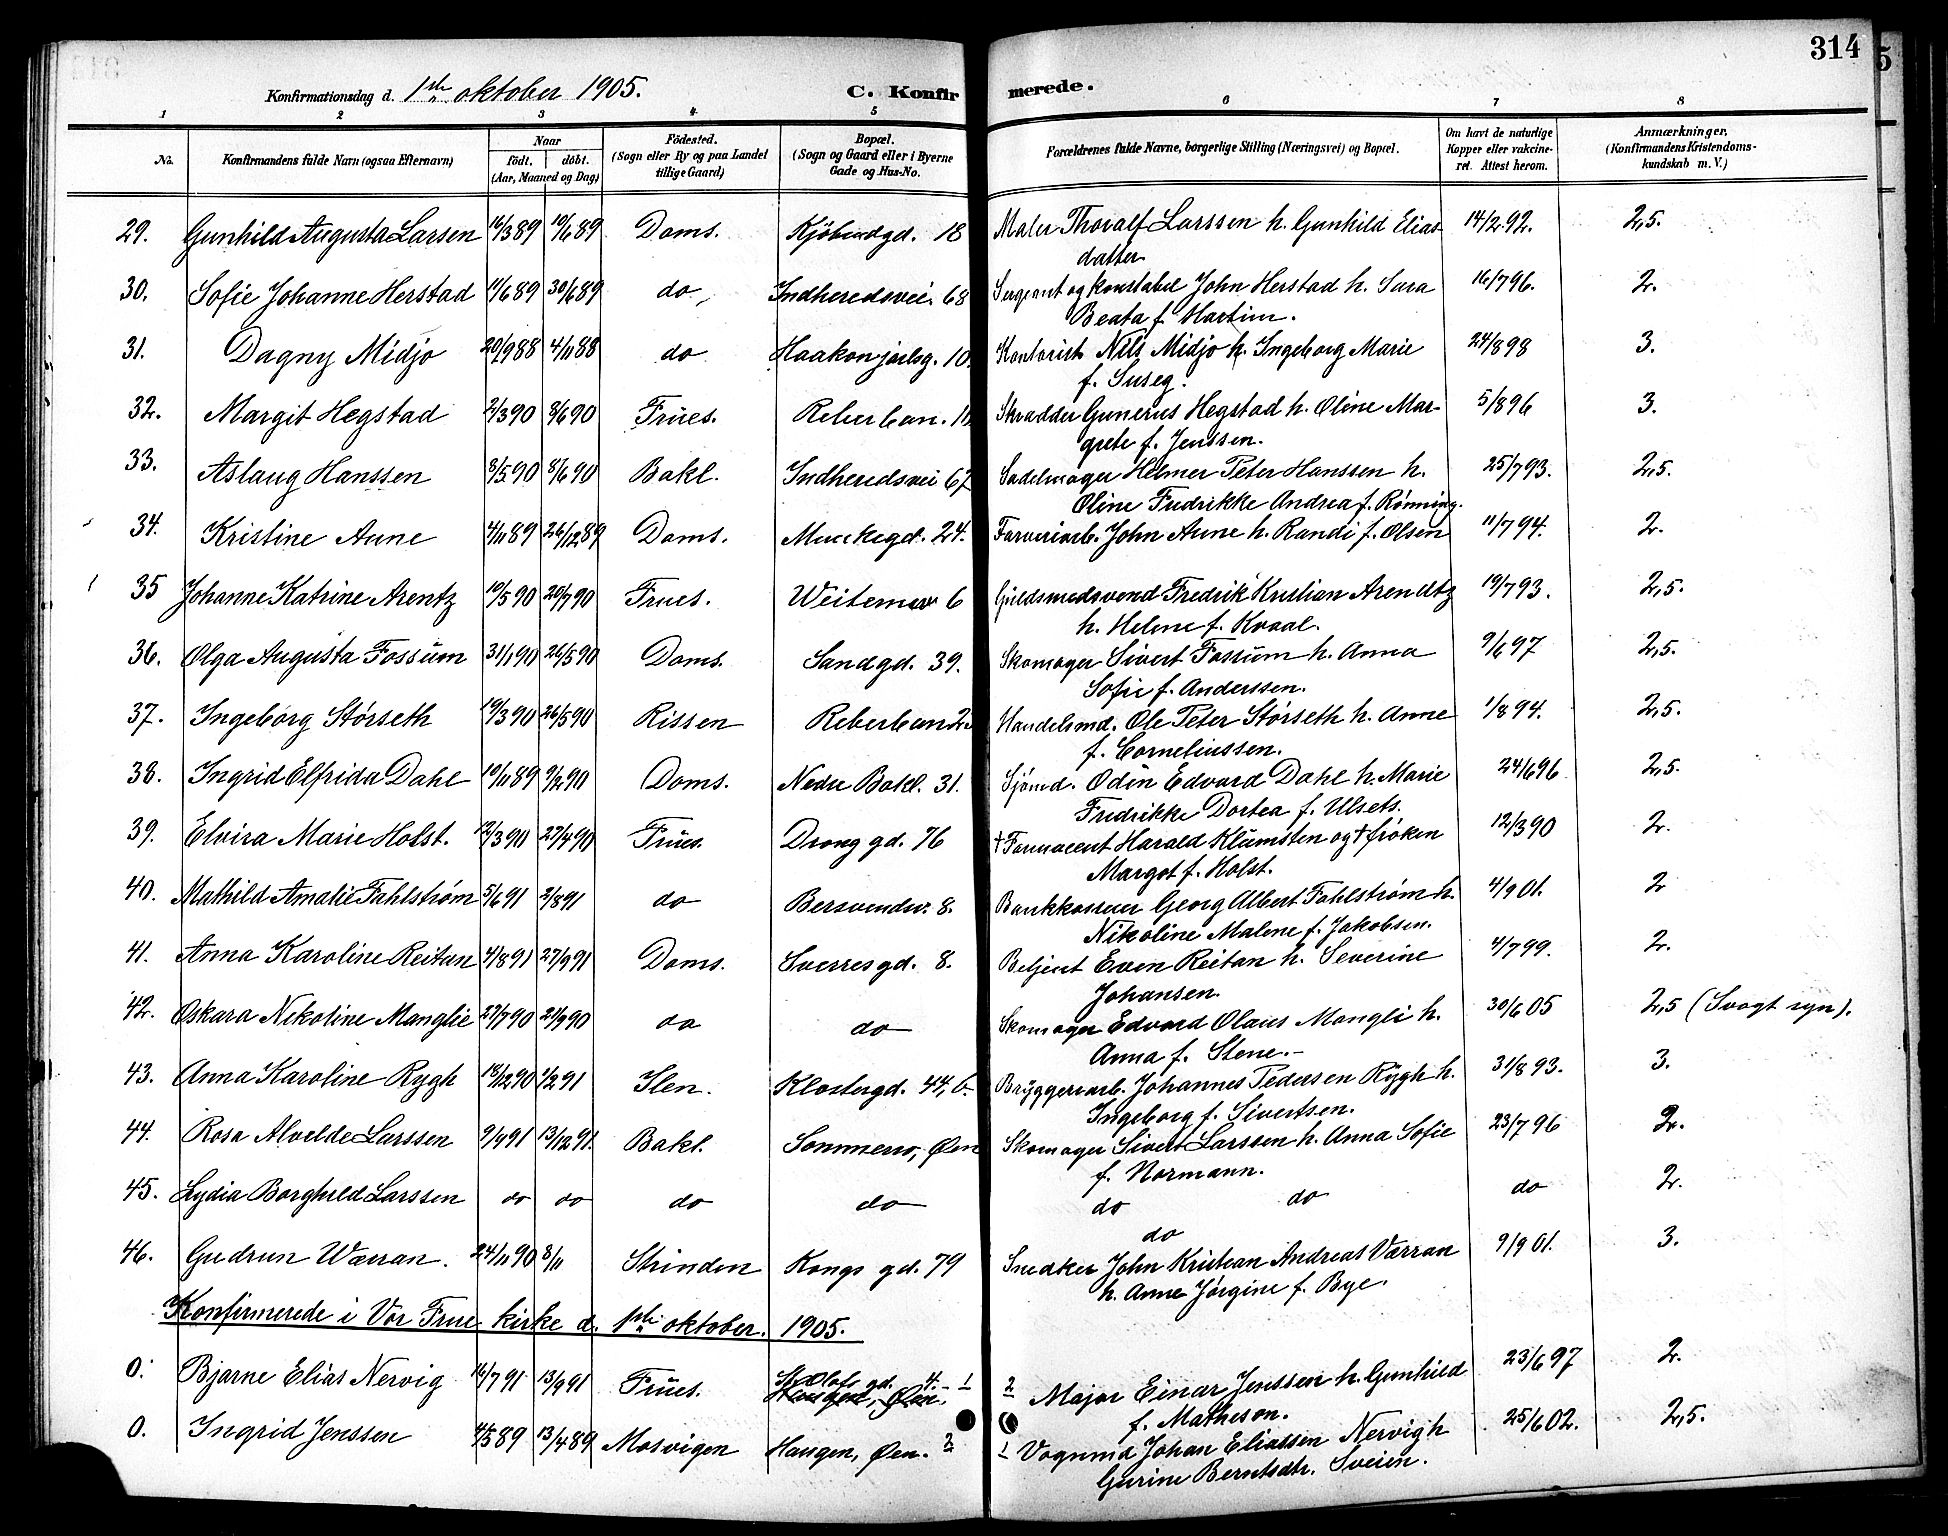 314
Konfirmationsdag d. 1ste oktober 1905.
C. Konfirmerede.
1 2 3 4 5 6 7 8
No. Konfirmandens fulde Navn (ogsaa Efternavn) Naar født. døbt. (Aar, Maaned og Dag) Fødested. (Sogn eller By og paa Landet tillige Gaard) Bopæl. (Sogn og Gaard eller i Byerne Gade og Hus-No. Forældrenes fulde Navne, borgerlige Stilling (Næringsvei) og Bopæl. Om havt de naturlige Kopper eller vakcineret. Attest herom. Anmærkninger, (Konfirmandens Kristendomskundskab m. V.)
29. Gunhild Augusta Larsen 16/3 89 10/6 89 Doms. Kjøbmdgd. 18 Maler Thoralf Larssen h. Gunhild Elias
datter 14/2 92. 2,5.
30. Sofie Johanne Herstad 11/6 89 30/6 89 do Indheredsvei. 68 Sergeant og konstabel John Herstad h. Sara
Beata f. Martim. 16/7 96. 2.
31. Dagny Midjo 20/9 88 4/11 88 do Haakon jarlsg. 10. Kontorist Nils Midjo h. Ingeborg Marie
f. Suseg. 24/8 98 3.
32. Margit Hegstad 2/3 90 8/6 90 Frues. Reberban. Skrædder Gunerius Hegstad h. Oline Mar-
grete f. Jenssen. 5/8 96 3.
33. Aslaug Hanssen 8/5 90 8/6 90 Bakl. Indheredsvei 67 Sadelmager Helmer Peter Hanssen h.
Oline Fredrikke Andrea f. Rønning. 25/7 93. 2,5.
34. Kristine Aune 4/11 89 26/12 89 Doms. Munkegd. 24. Farveriarb. John Aune h. Randi f. Olsen 11/7 94. 2.
35 Johanne Katrine Arentz 10/5 90 20/7 90 Frues. Weitemsv 6 Guldsmedsvend Fredrik Kristian Arendtz
h. Helene f. Kvaal. 19/7 93. 2,5.
36. Olga Augusta Fossum 31/1 90 26/5 90 Doms. Sandgd. 39. Skomager Sivert Fossum h. Anna
Sofie f. Anderssen. 9/6 97 2,5.
37. Ingeborg Störseth 19/3 90 26/5 90 Rissen Reberban 2. Handelsmd. Ole Peter Störseth h. Anne
f. Corneliussen. 1/8 94. 2,5.
38. Ingrid Elfrida Dahl 10/11 89 9/2 90 Doms. Nedre Bakl. 31. Sjømd. Odin Edvard Dahl h. Marie
Fredrikke Dortea f. Ulsets. 24/6 96 2,5.
39. Elvira Marie Holst. 12/3 90 27/4 90 Frues. Drong gd. 76 † Farmaceut Harald Klumsten og † frøken
Margot f. Holst. 12/3 90 2.
40. Mathild Amalie Fahlstrøm 5/6 91 2/8 91 do Bersvendsv. 8. Bankkasserer Georg Albert Fahlstrøm h.
Nikoline Malene f. Jakobsen. 4/9 01. 2
41. Anna Karoline Reitan 4/8 91 27/9 91 Doms. Sverresgd. 8. Betjent Even Reitan h. Severine
Johansen. 4/7 99. 2.
42. Oskara Nikoline Manglie 27/7 90 21/9 90 do do Skomager Edvard Olaus Mangli h.
Anna f. Stene.- 30/6 05 2,5 (Svagt syn).
43. Anna Karoline Rygh 18/12 90 1/2 91 Ilen. Klostergd. 44, b Bryggeriarb. Johannes Pedersen Rygh h.
Ingeborg f. Sivertsen. 31/8 93. 3.
44. Rosa Alvelde Larssen 9/9 91 13/12 91. Bakl. Sommerro, Øen Skomager Sivert Larssen h. Anna Sofie
f. Normann. 23/7 96 2.
45. Lydia Borghild Larssen do do do do do do do 2.
do
46. Gudrun Wærran. 24/11 90 8/11 Strinden Kongs gd. 79 Snedker John Kristian Andreas Værran
h. Anne Jørgine f. Bye. 9/9 01. 3.
Konfirmerede i Vor Frue kirke d. 1ste oktober. 1905.
0. Bjarne Elias Nervig 16/7 91 13/9 91 Frues. St. Olafs gd. 4. 1 2 Major Einar Jenssen h. Gunhild
Haugen, Øen.
f. Matheson. 23/6 97 2.
0. Ingrid Jenssen 4/3 89 13/4 89 Mosvigen Haugen, Øen. 2 1 Vognmd Johan Eliassen Nervig h
Gurine Berntsdtr. Sveien. 25/6 02. 2,5.